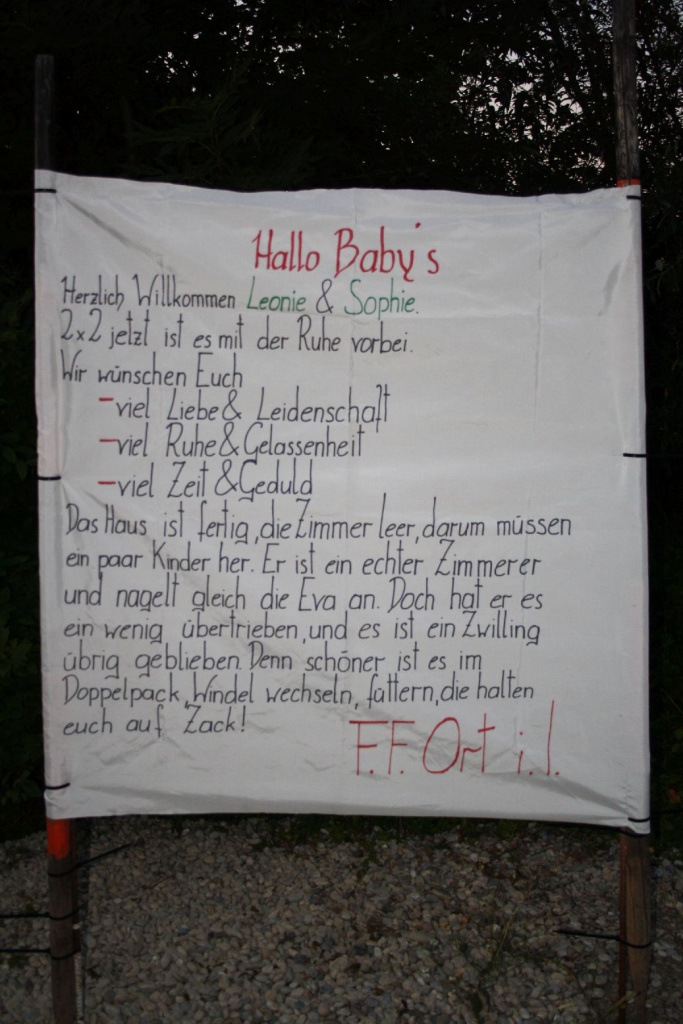 Hallo Baby's
Herzlich Willkommen Leonie & Sophie.
2x2 jetzt ist es mit der Ruhe vorbei.
Wir wünschen Euch
-viel Liebe & Leidenschaft
-viel Ruhe & Gelassenheit
-viel Zeit & Geduld
Das Haus ist fertig, die Zimmer leer, darum müssen
ein paar Kinder her. Er ist ein echter Zimmerer
und nagelt gleich die Eva an. Doch hat er es
ein wenig übertrieben, und es ist ein Zwilling
übrig geblieben. Denn schöner ist es im
Doppelpack, Windel wechseln, füttern, die halten
euch auf Zack!
F.F. Ort i.I.